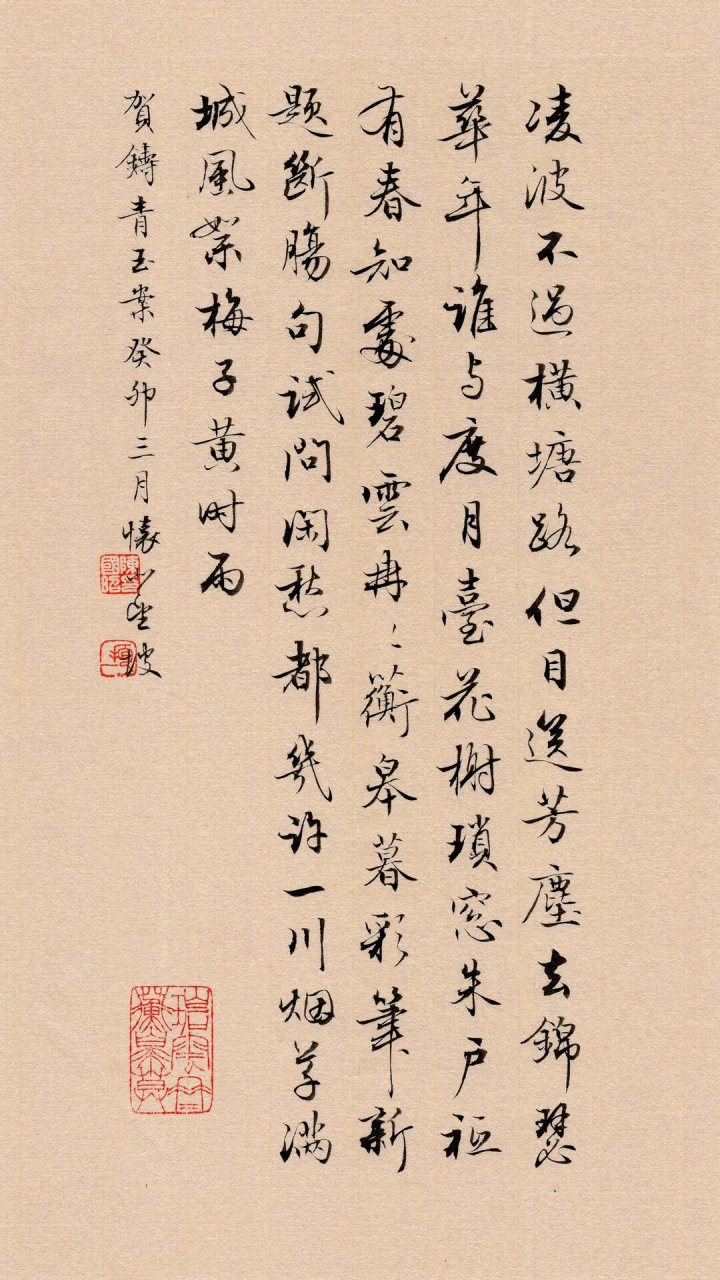 凌波不過橫塘路但目送芳塵去錦瑟
華年誰与度月臺花榭瑣窓朱戶祗
有春知處碧雲冉〻蘅皋暮彩筆新
题斷腸句試問閑愁都幾許一川烟草滿
城風絮梅子黃时雨
賀鑄青玉案癸卯三月懷